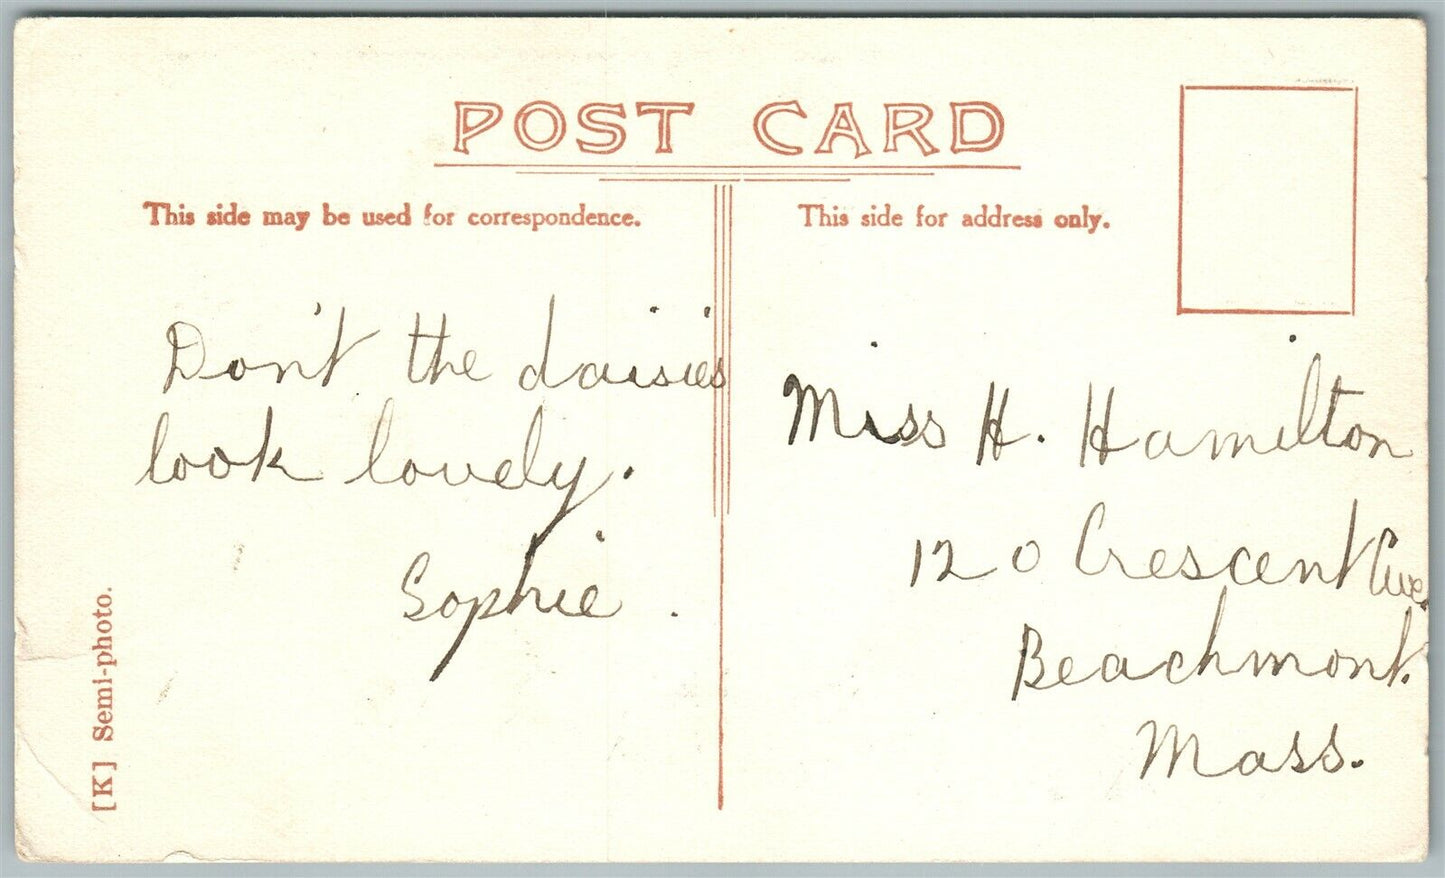 POST CARD
This side may be used for correspondence.
This side for address only.
Don't the daisies
look lovely.
Sophie.
Miss H. Hamilton
120 Crescent Ave.
Beachmont.
Mass.
[K] Semi-photo.